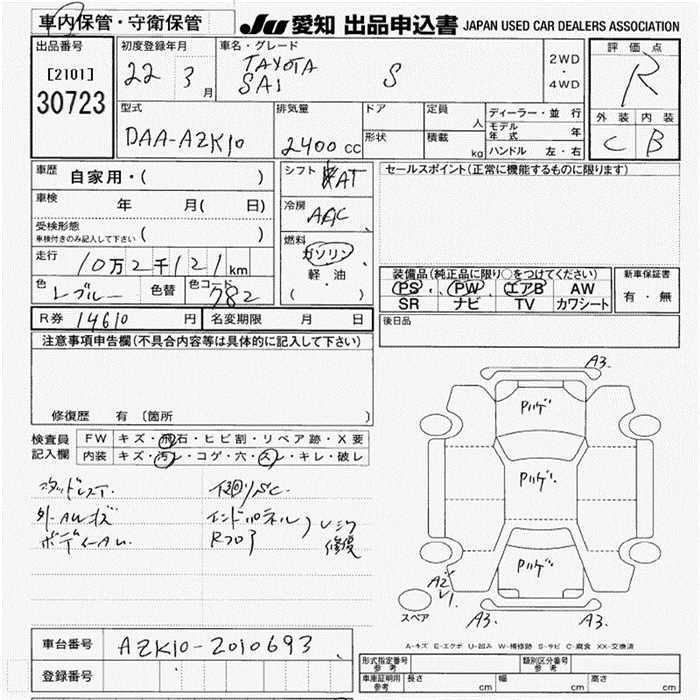 車内保管・守衛保管
JU 愛知 出品申込書 JAPAN USED CAR DEALERS ASSOCIATION
出品番号
[2101]
30723
初度登録年月
22 3月
車名・グレード
TAYOTA
SAI S
2WD
・
4WD
評価点
R
外装 内装
C B
型式
DAA-AZK10
排気量
2400 cc
ドア
形状
定員 人
積載 kg
ディーラー・並行
モデル年式 年
ハンドル 左・右
車歴 自家用・( )
車検 年 月( 日)
受検形態
車検付きのみ記入して下さい ( )
走行 10万2千121km
色 レブルー 色替 色コード 782
シフト AT
冷房 AAC
燃料
ガソリン
軽・油
( )
セールスポイント(正常に機能するものに限ります)
装備品(純正品に限り○をつけてください)
PS PW エアB AW
SR ナビ TV カワシート
新車保証書
有・無
R券 14610 円 名変期限 月 日
後日品
注意事項申告欄(不具合内容等は具体的に記入して下さい)
修復歴 有 〔箇所 〕
検査員
記入欄
FW キズ・飛石・ヒビ割・リペア跡・X要
内装 キズ・汚レ・コゲ・穴・スレ・キレ・破レ
スタッドレスT.
外-AWキズ
下廻りSC.
エンドパネル
Rフロア
修復
A3.
Pハゲ
Pハゲ
Pハゲ
A2
A3.
A3.
スペア
A-キズ E-エクボ U-凹み W-補修跡 S-サビ C-腐食 XX-交換済
車台番号 AZK10-2010693
登録番号
形式指定番号 参考
類別区分番号 参考
車庫証明用 参考 長さ cm 幅 cm 高さ cm